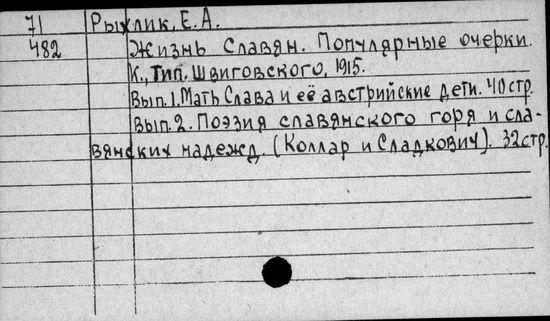 71 Рыхлик, Е. А.
482 Жизнь Славян. Популярные очерки.
К., Тип. Швиговского, 1915.
Вып. 1. Мать Слава и её австрийские дети. 40 стр.
Вып. 2. Поэзия славянского горя и сла-
вянских надежд. (Коллар и Сладкович). 32 стр.